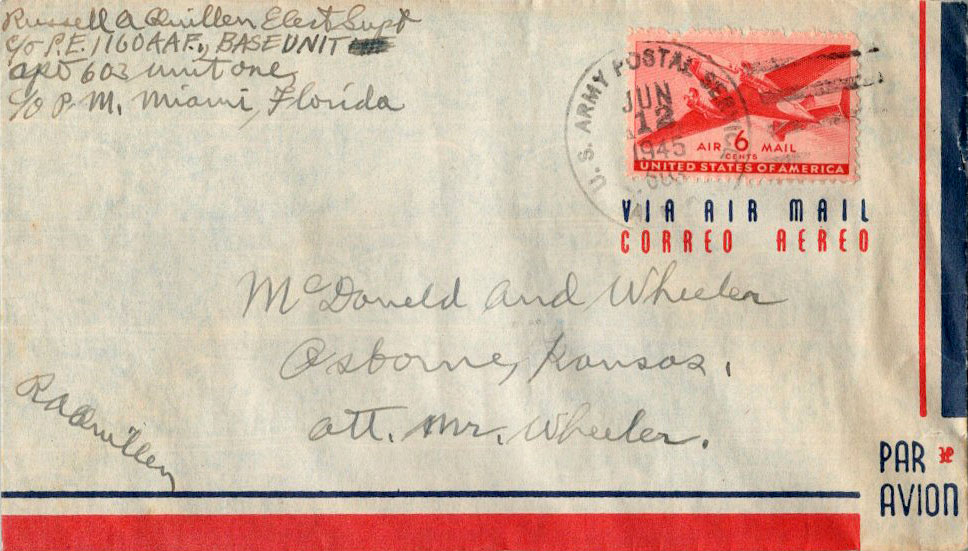 Russell A Quillen Elect Supt
c/o P.E. 1160 AAF., BASE UNIT
APO 603 unit one,
c/o P.M. Miami, Florida
U.S. ARMY POSTAL SERVICE
JUN
12
1945
AIR 6 MAIL
CENTS
UNITED STATES OF AMERICA
VIA AIR MAIL
CORREO AEREO
McDonald and Wheeler
Osborne, Kansas.
att. Mr. Wheeler.
RAQuillen
PAR
AVION